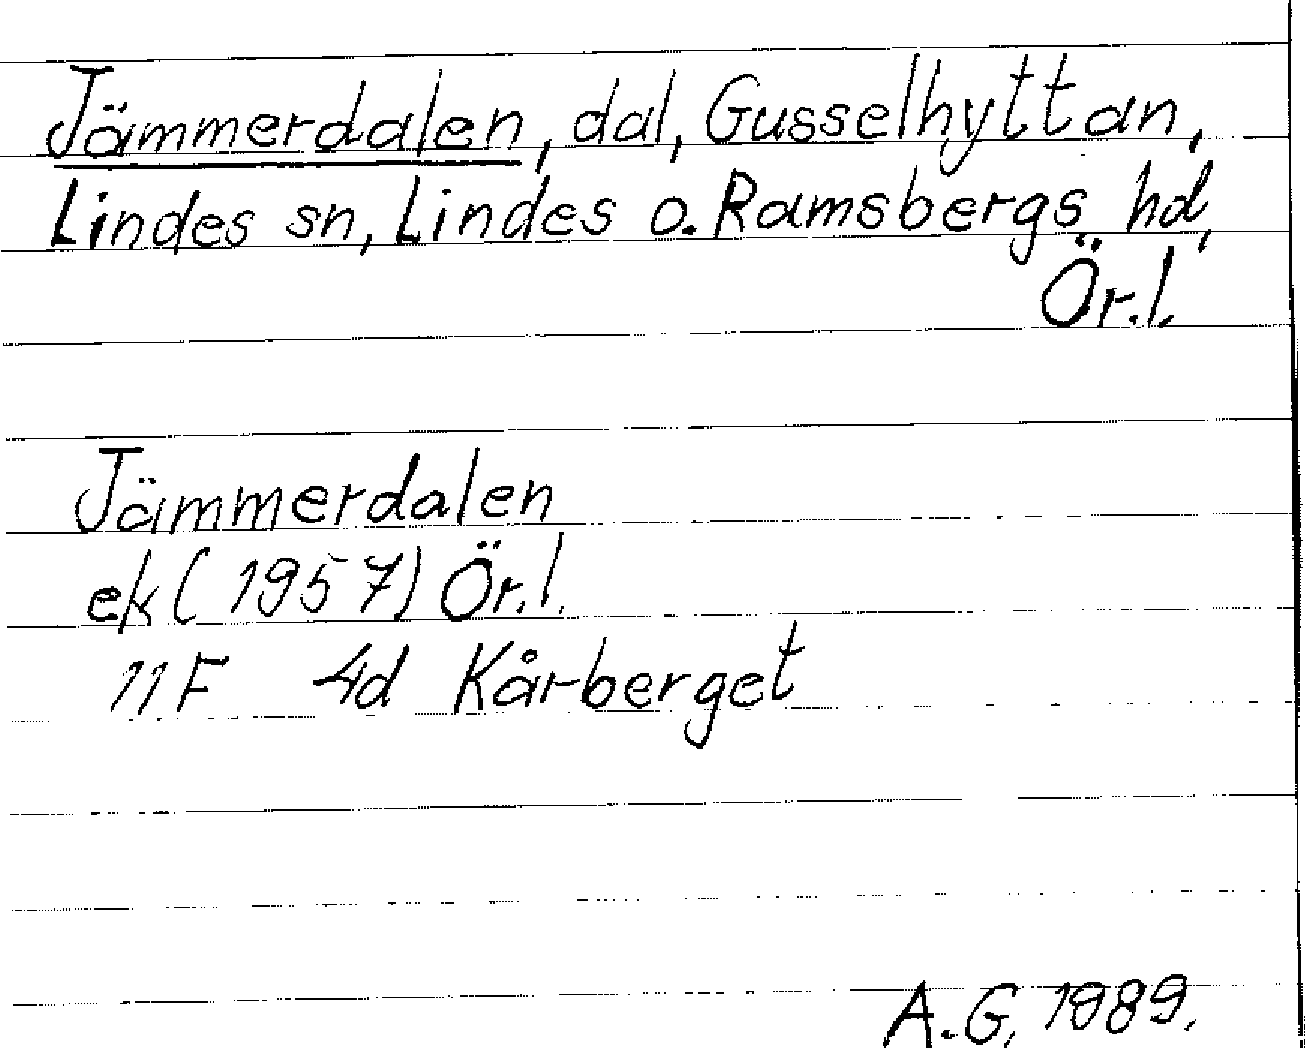 Jämmerdalen, dal, Gusselhyttan,
Lindes sn, Lindes o. Ramsbergs hd,
Ör.l.
Jämmerdalen
ek (1957) Ör.l.
11F 4d Kårberget
A.G. 1989.